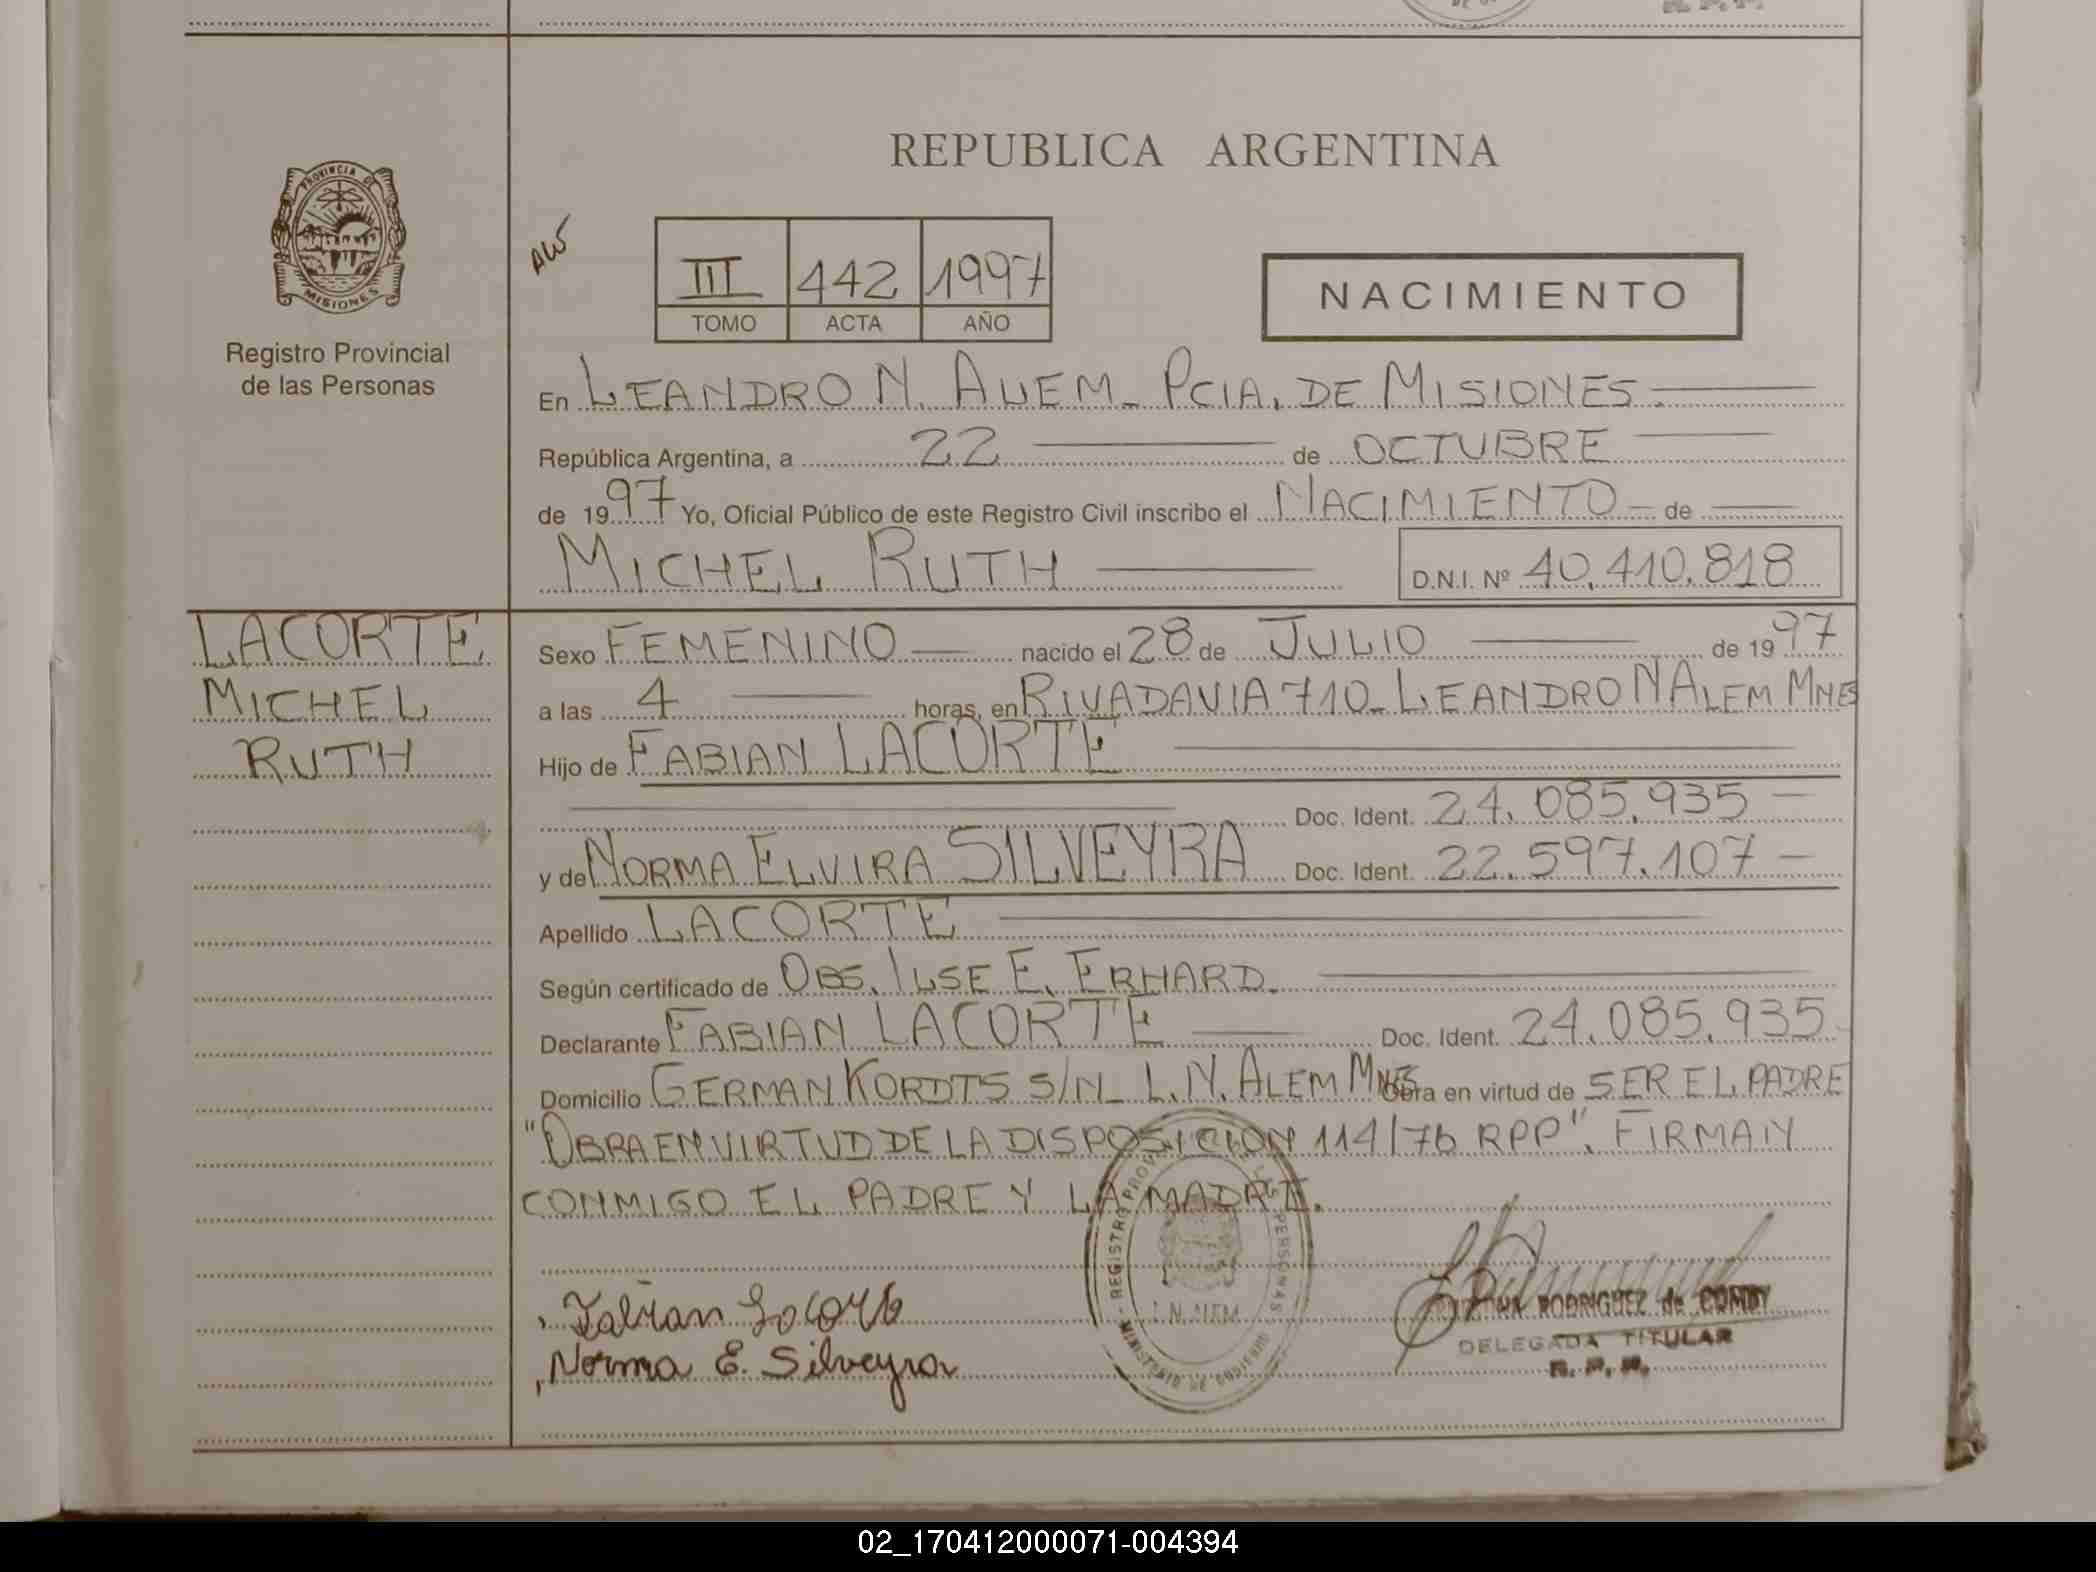 REPUBLICA ARGENTINA
PROVINCIA DE
MISIONES
Registro Provincial
de las Personas
III 442 1997
TOMO ACTA AÑO
NACIMIENTO
En LEANDRO N. ALEM - PCIA. DE MISIONES.
República Argentina, a 22 de OCTUBRE
de 1997 Yo, Oficial Público de este Registro Civil inscribo el NACIMIENTO de
MICHEL RUTH D.N.I. Nº 40.410.818
LACORTE
MICHEL
RUTH
Sexo FEMENINO nacido el 28 de JULIO de 1997
a las 4 horas, en RIVADAVIA 710 - LEANDRO N ALEM MNES
Hijo de FABIAN LACORTE
Doc. Ident. 24.085.935 -
y de NORMA ELVIRA SILVEYRA Doc. Ident. 22.597.107 -
Apellido LACORTE
Según certificado de OBS. ILSE E. ERHARD.
Declarante FABIAN LACORTE Doc. Ident. 24.085.935 -
Domicilio GERMAN KORDTS S/N - L.N. ALEM MNES Obra en virtud de SER EL PADRE
"OBRA EN VIRTUD DE LA DISPOSICION 114/76 RPP". FIRMAN
CONMIGO EL PADRE Y LA MADRE.
Fabian Lacorte
Norma E. Silveyra
L.N. ALEM
RODRIGUEZ de
DELEGADA TITULAR
R. P. P.
02_170412000071-004394